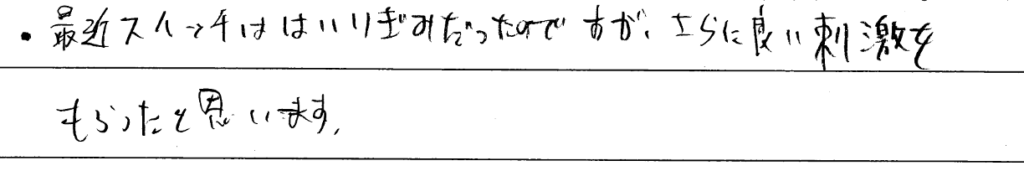 ・最近スイッチははいりぎみだったのですが、さらに良い刺激を
もらったと思います。